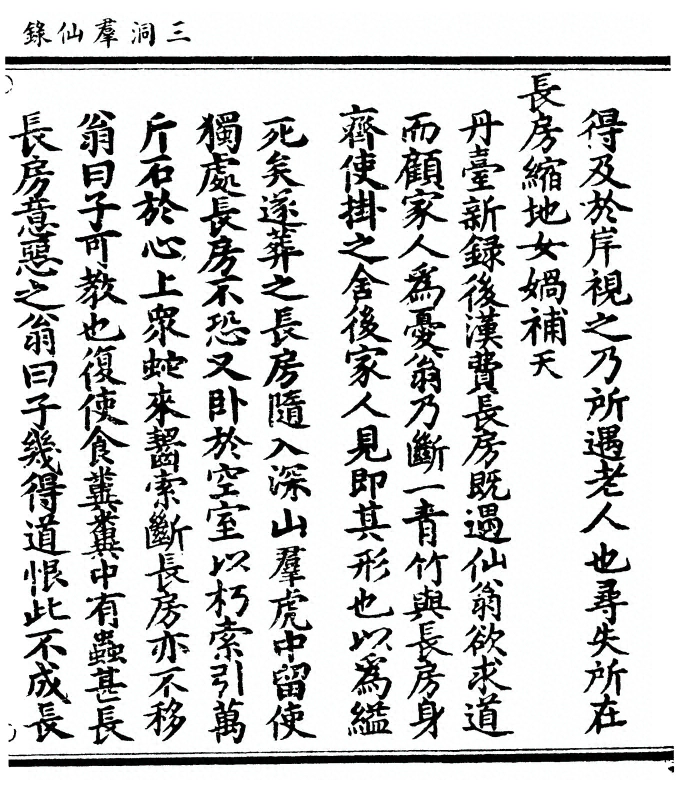 三洞羣仙錄
得及於岸視之乃所遇老人也尋失所在
長房縮地女媧補天
丹臺新録後漢費長房既遇仙翁欲求道
而顧家人爲憂翁乃斷一青竹與長房身
齊使掛之舍後家人見即其形也以爲縊
死矣遂葬之長房隨入深山羣虎中留使
獨處長房不恐又卧於空室以朽索引萬
斤石於心上眾蛇來齧索斷長房亦不移
翁曰子可教也復使食糞糞中有蟲甚長
長房意惡之翁曰子幾得道恨此不成長